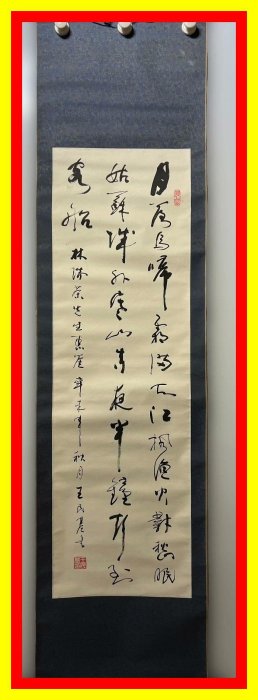 月落烏啼霜滿天江楓漁火對愁眠
姑蘇城外寒山寺夜半鐘聲到
客船
林先生惠存辛年秋月王民書